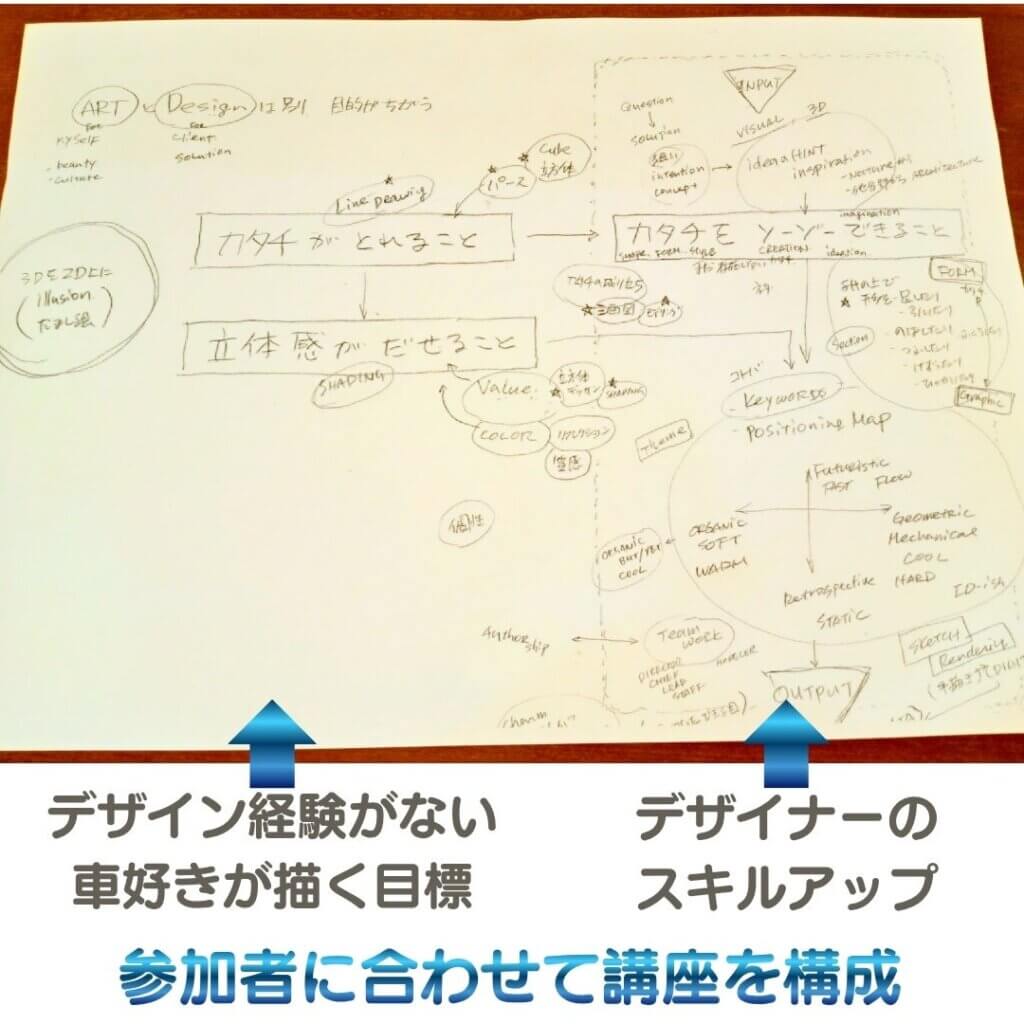 ART と Design は別 目的がちがう
for
MYSELF
for
client
solution
・beauty
・culture
Line Drawing
パース
Cube
立方体
カタチがとれること
3Dを2D上に
Illusion
だまし絵
立体感がだせること
SHADING
Value
立方体
デッサン
SHADING
COLOR
リフレクション
質感
個性
Authorship
INPUT
Question
solution
VISUAL, 3D
想い
intention
concept
idea HINT
inspiration
ARCHITECTURE
imagination
カタチを ソーゾーできること
SHAPE FORM STYLE
CREATION
ideation
三面図
FORM
Section
Graphic
コトバ
Keywords
Theme
Positioning Map
Futuristic
FAST FLOW
ORGANIC
SOFT
WARM
Geometric
Mechanical
COOL
HARD
ORGANIC
BUT/YET
COOL
Retrospective
STATIC
ID-ish
Team
WORK
DIRECTOR
CHIEF
LEAD
STAFF
MODELER
SKETCH
Rendering
OUTPUT
デザイン経験がない
車好きが描く目標
デザイナーの
スキルアップ
参加者に合わせて講座を構成